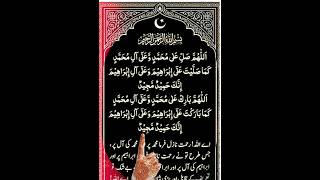 بِسْمِ اللهِ الرَّحْمٰنِ الرَّحِيْمِ
اَللّٰهُمَّ صَلِّ عَلٰى مُحَمَّدٍ وَّعَلٰى اٰلِ مُحَمَّدٍ
كَمَا صَلَّيْتَ عَلٰى اِبْرَاهِيْمَ وَعَلٰى اٰلِ اِبْرَاهِيْمَ
اِنَّكَ حَمِيْدٌ مَّجِيْدٌ
اَللّٰهُمَّ بَارِكْ عَلٰى مُحَمَّدٍ وَّعَلٰى اٰلِ مُحَمَّدٍ
كَمَا بَارَكْتَ عَلٰى اِبْرَاهِيْمَ وَعَلٰى اٰلِ اِبْرَاهِيْمَ
اِنَّكَ حَمِيْدٌ مَّجِيْدٌ
اے اللہ! رحمت نازل فرما محمد پر اور محمد کی آل پر،
جس طرح تو نے رحمت نازل کی ابراہیم پر اور
ابراہیم کی آل پر، بے شک تو